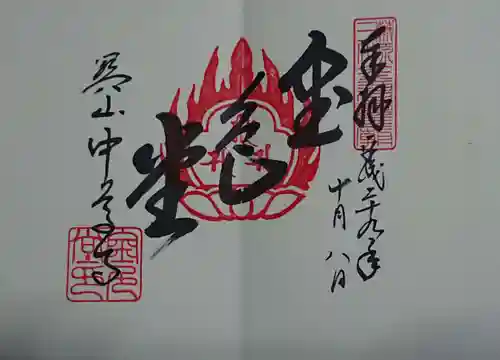 奉拝
平成二十九年
十月八日
金色堂
関山中尊寺
金色堂印